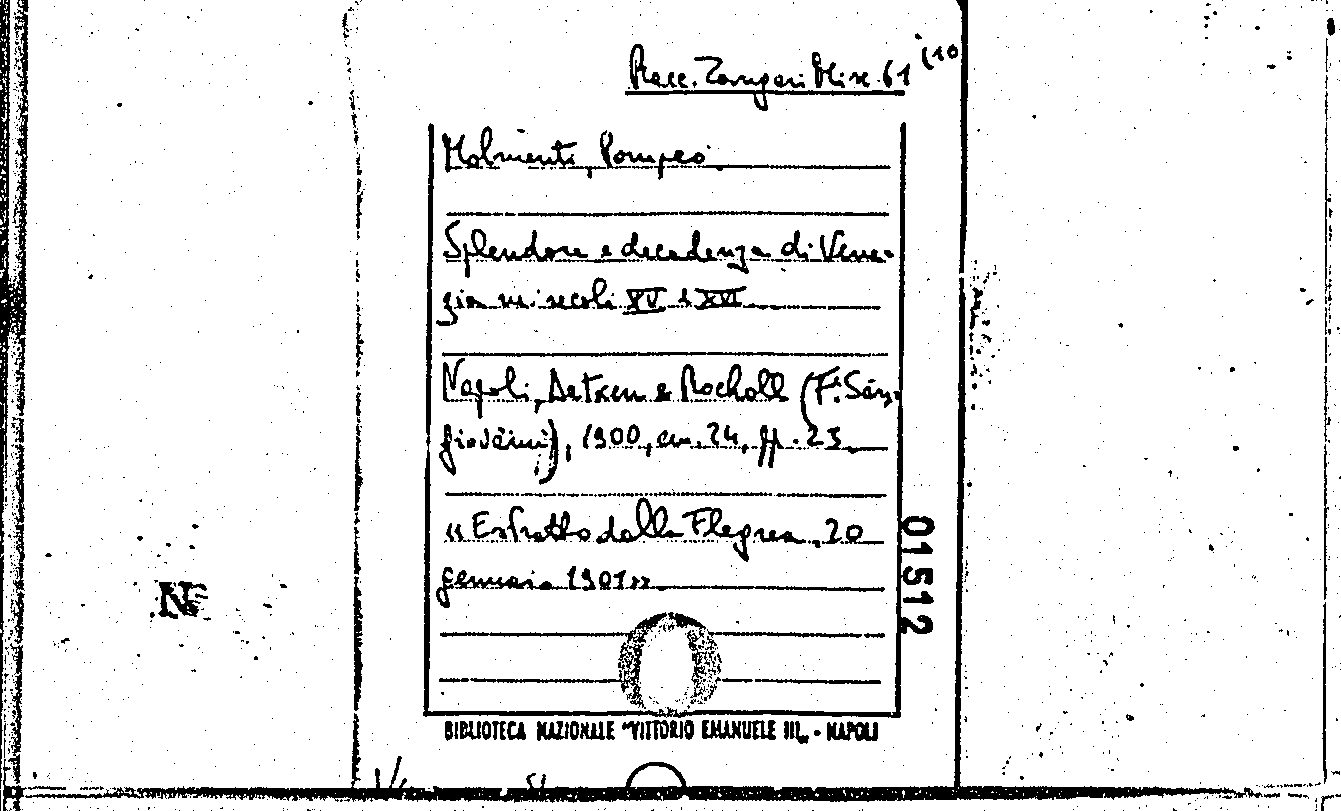 Racc. Zangari Misc. 61 (10
Molmenti, Pompeo
Splendore e decadenza di Vene-
zia nei secoli XV e XVI
Napoli, Detken e Rocholl (F. San-
giovanni), 1900, cm. 24, pp. 23
« Estratto dalla Flegrea, 20
gennaio 1901 »
01512
BIBLIOTECA NAZIONALE "VITTORIO EMANUELE III„ - NAPOLI